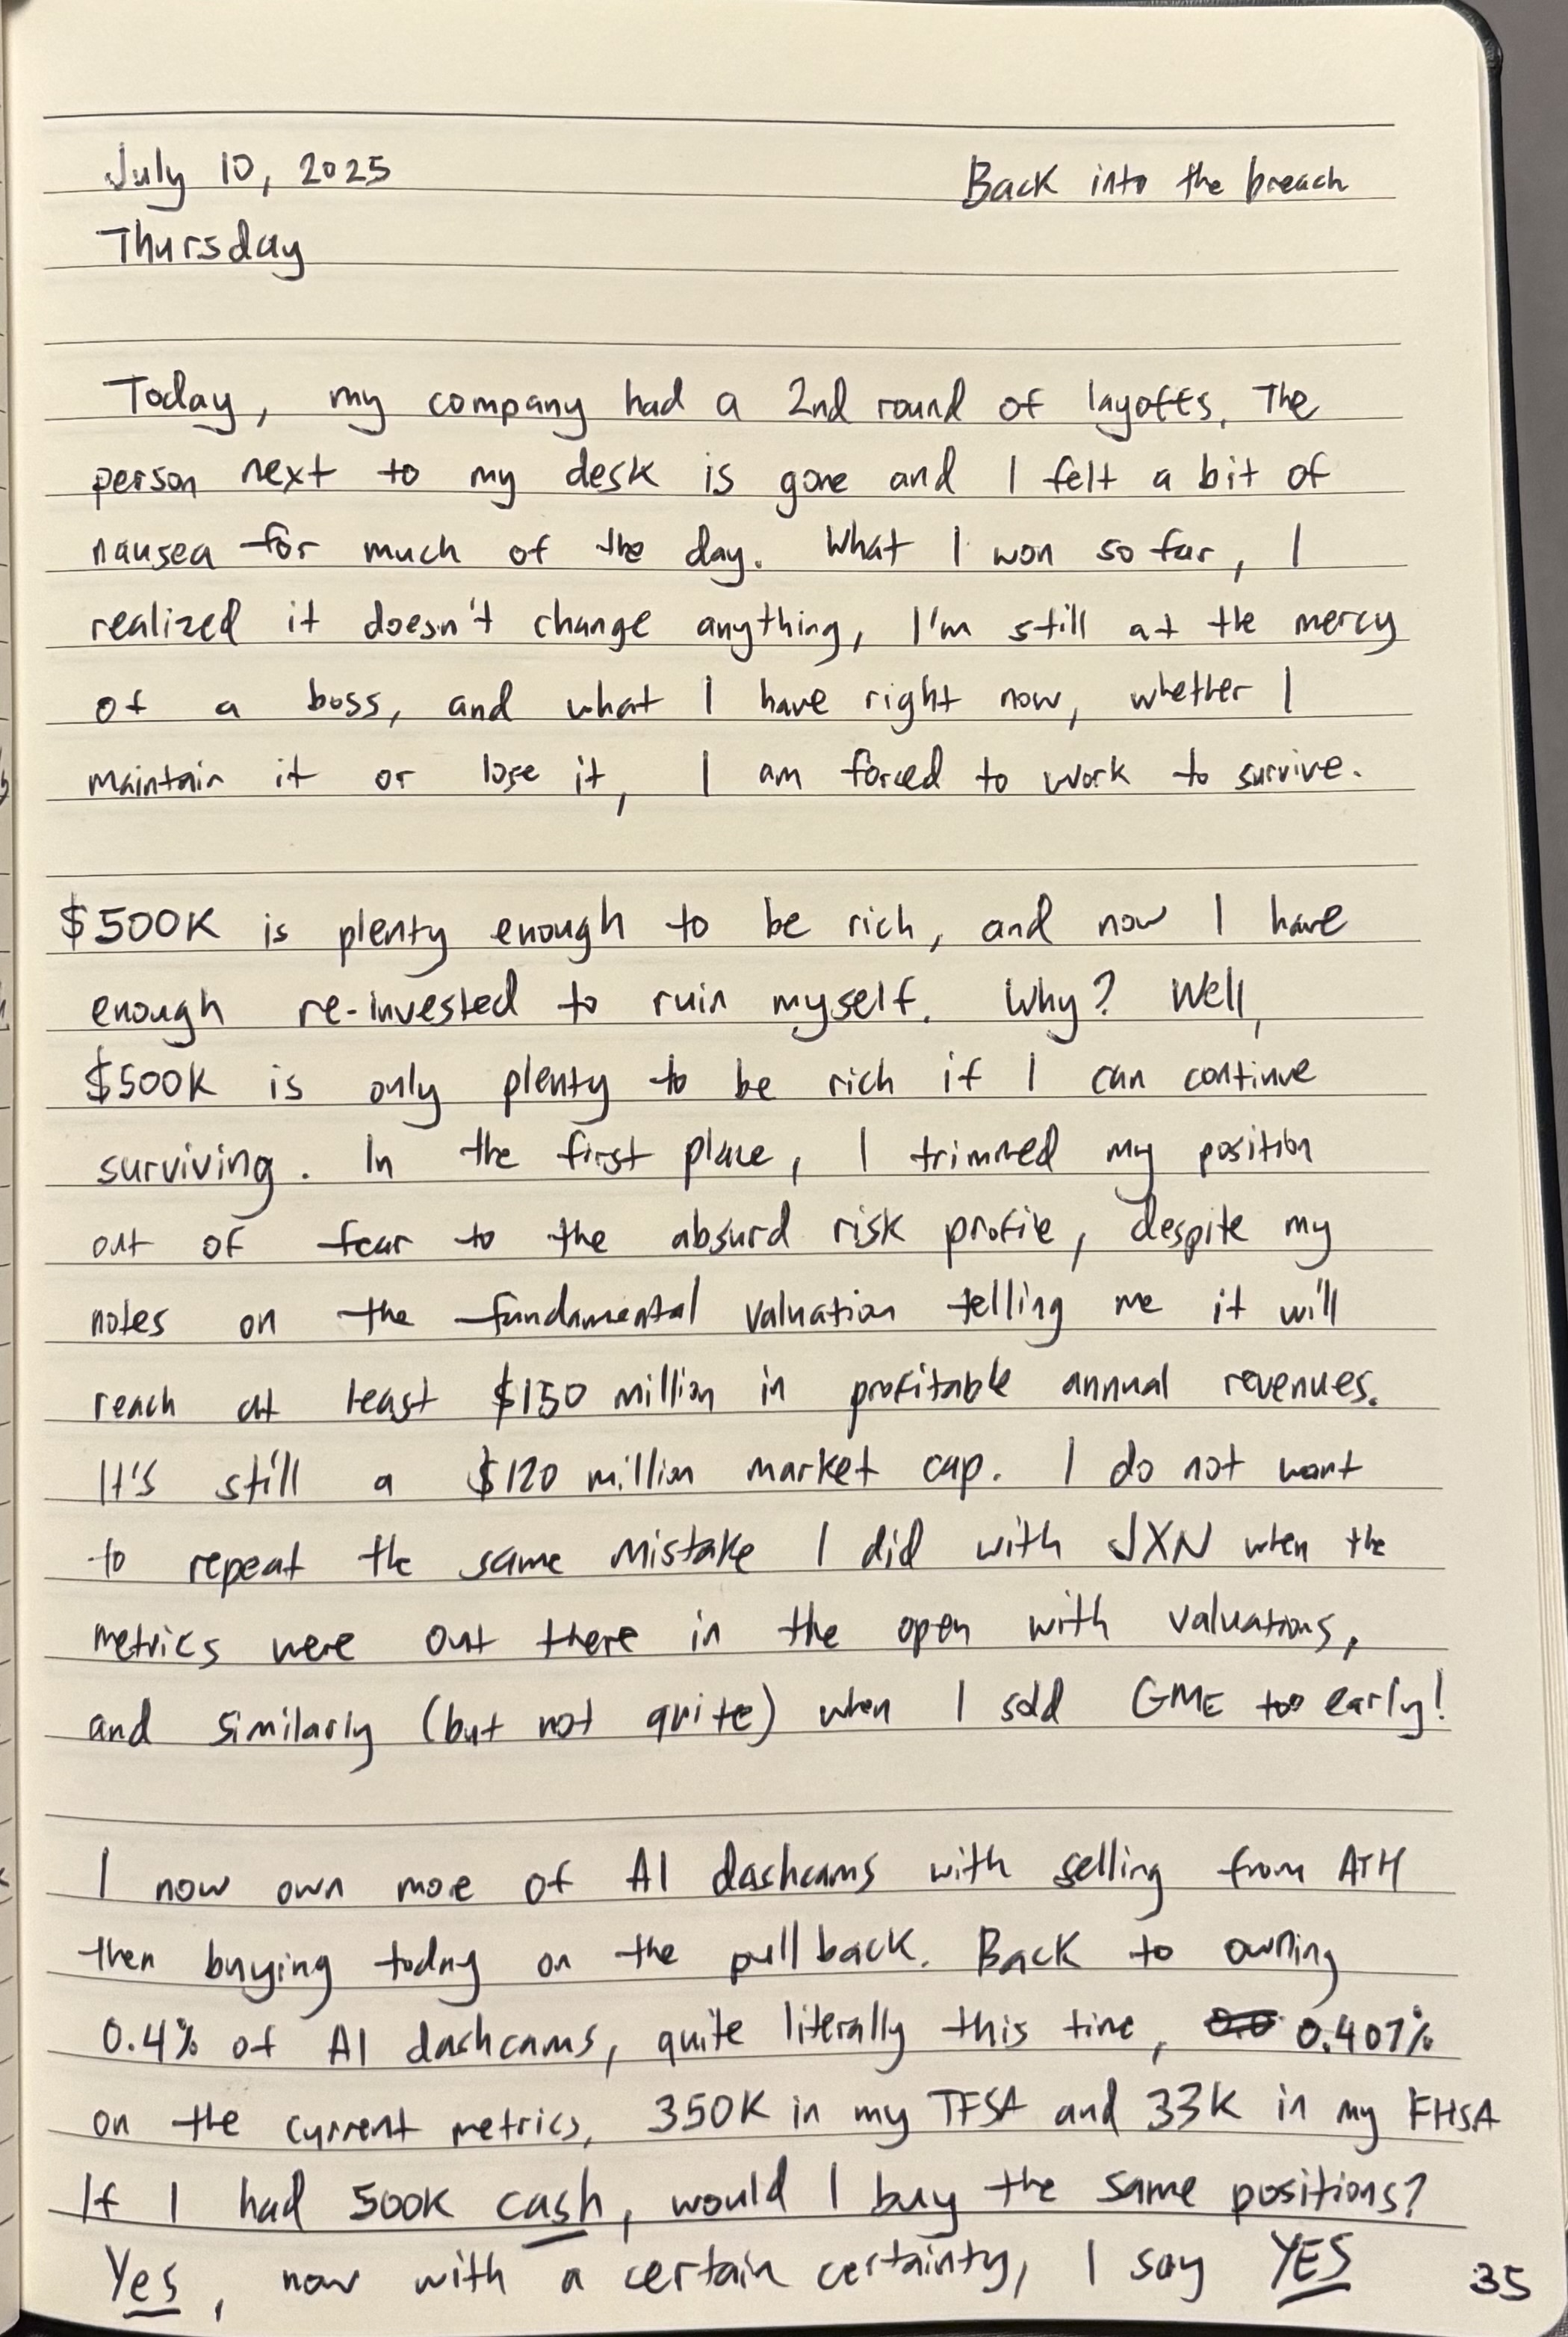 July 10, 2025
Back into the breach
Thursday
Today, my company had a 2nd round of layoffs. The
person next to my desk is gone and I felt a bit of
nausea for much of the day. What I won so far, I
realized it doesn't change anything, I'm still at the mercy
of a boss, and what I have right now, whether I
maintain it or lose it, I am forced to work to survive.
$500K is plenty enough to be rich, and now I have
enough re-invested to ruin myself. Why? Well,
$500K is only plenty to be rich if I can continue
surviving. In the first place, I trimmed my position
out of fear to the absurd risk profile, despite my
notes on the fundamental valuation telling me it will
reach at least $150 million in profitable annual revenues.
It's still a $120 million market cap. I do not want
to repeat the same mistake I did with JXN when the
metrics were out there in the open with valuations,
and similarly (but not quite) when I sold GME too early!
I now own more of AI dashcams with selling from ATH
then buying today on the pullback. Back to owning
0.4% of AI dashcams, quite literally this time, 0.407%
on the current metrics, 350K in my TFSA and 33K in my FHSA
If I had 500K cash, would I buy the same positions?
Yes, now with a certain certainty, I say YES
35